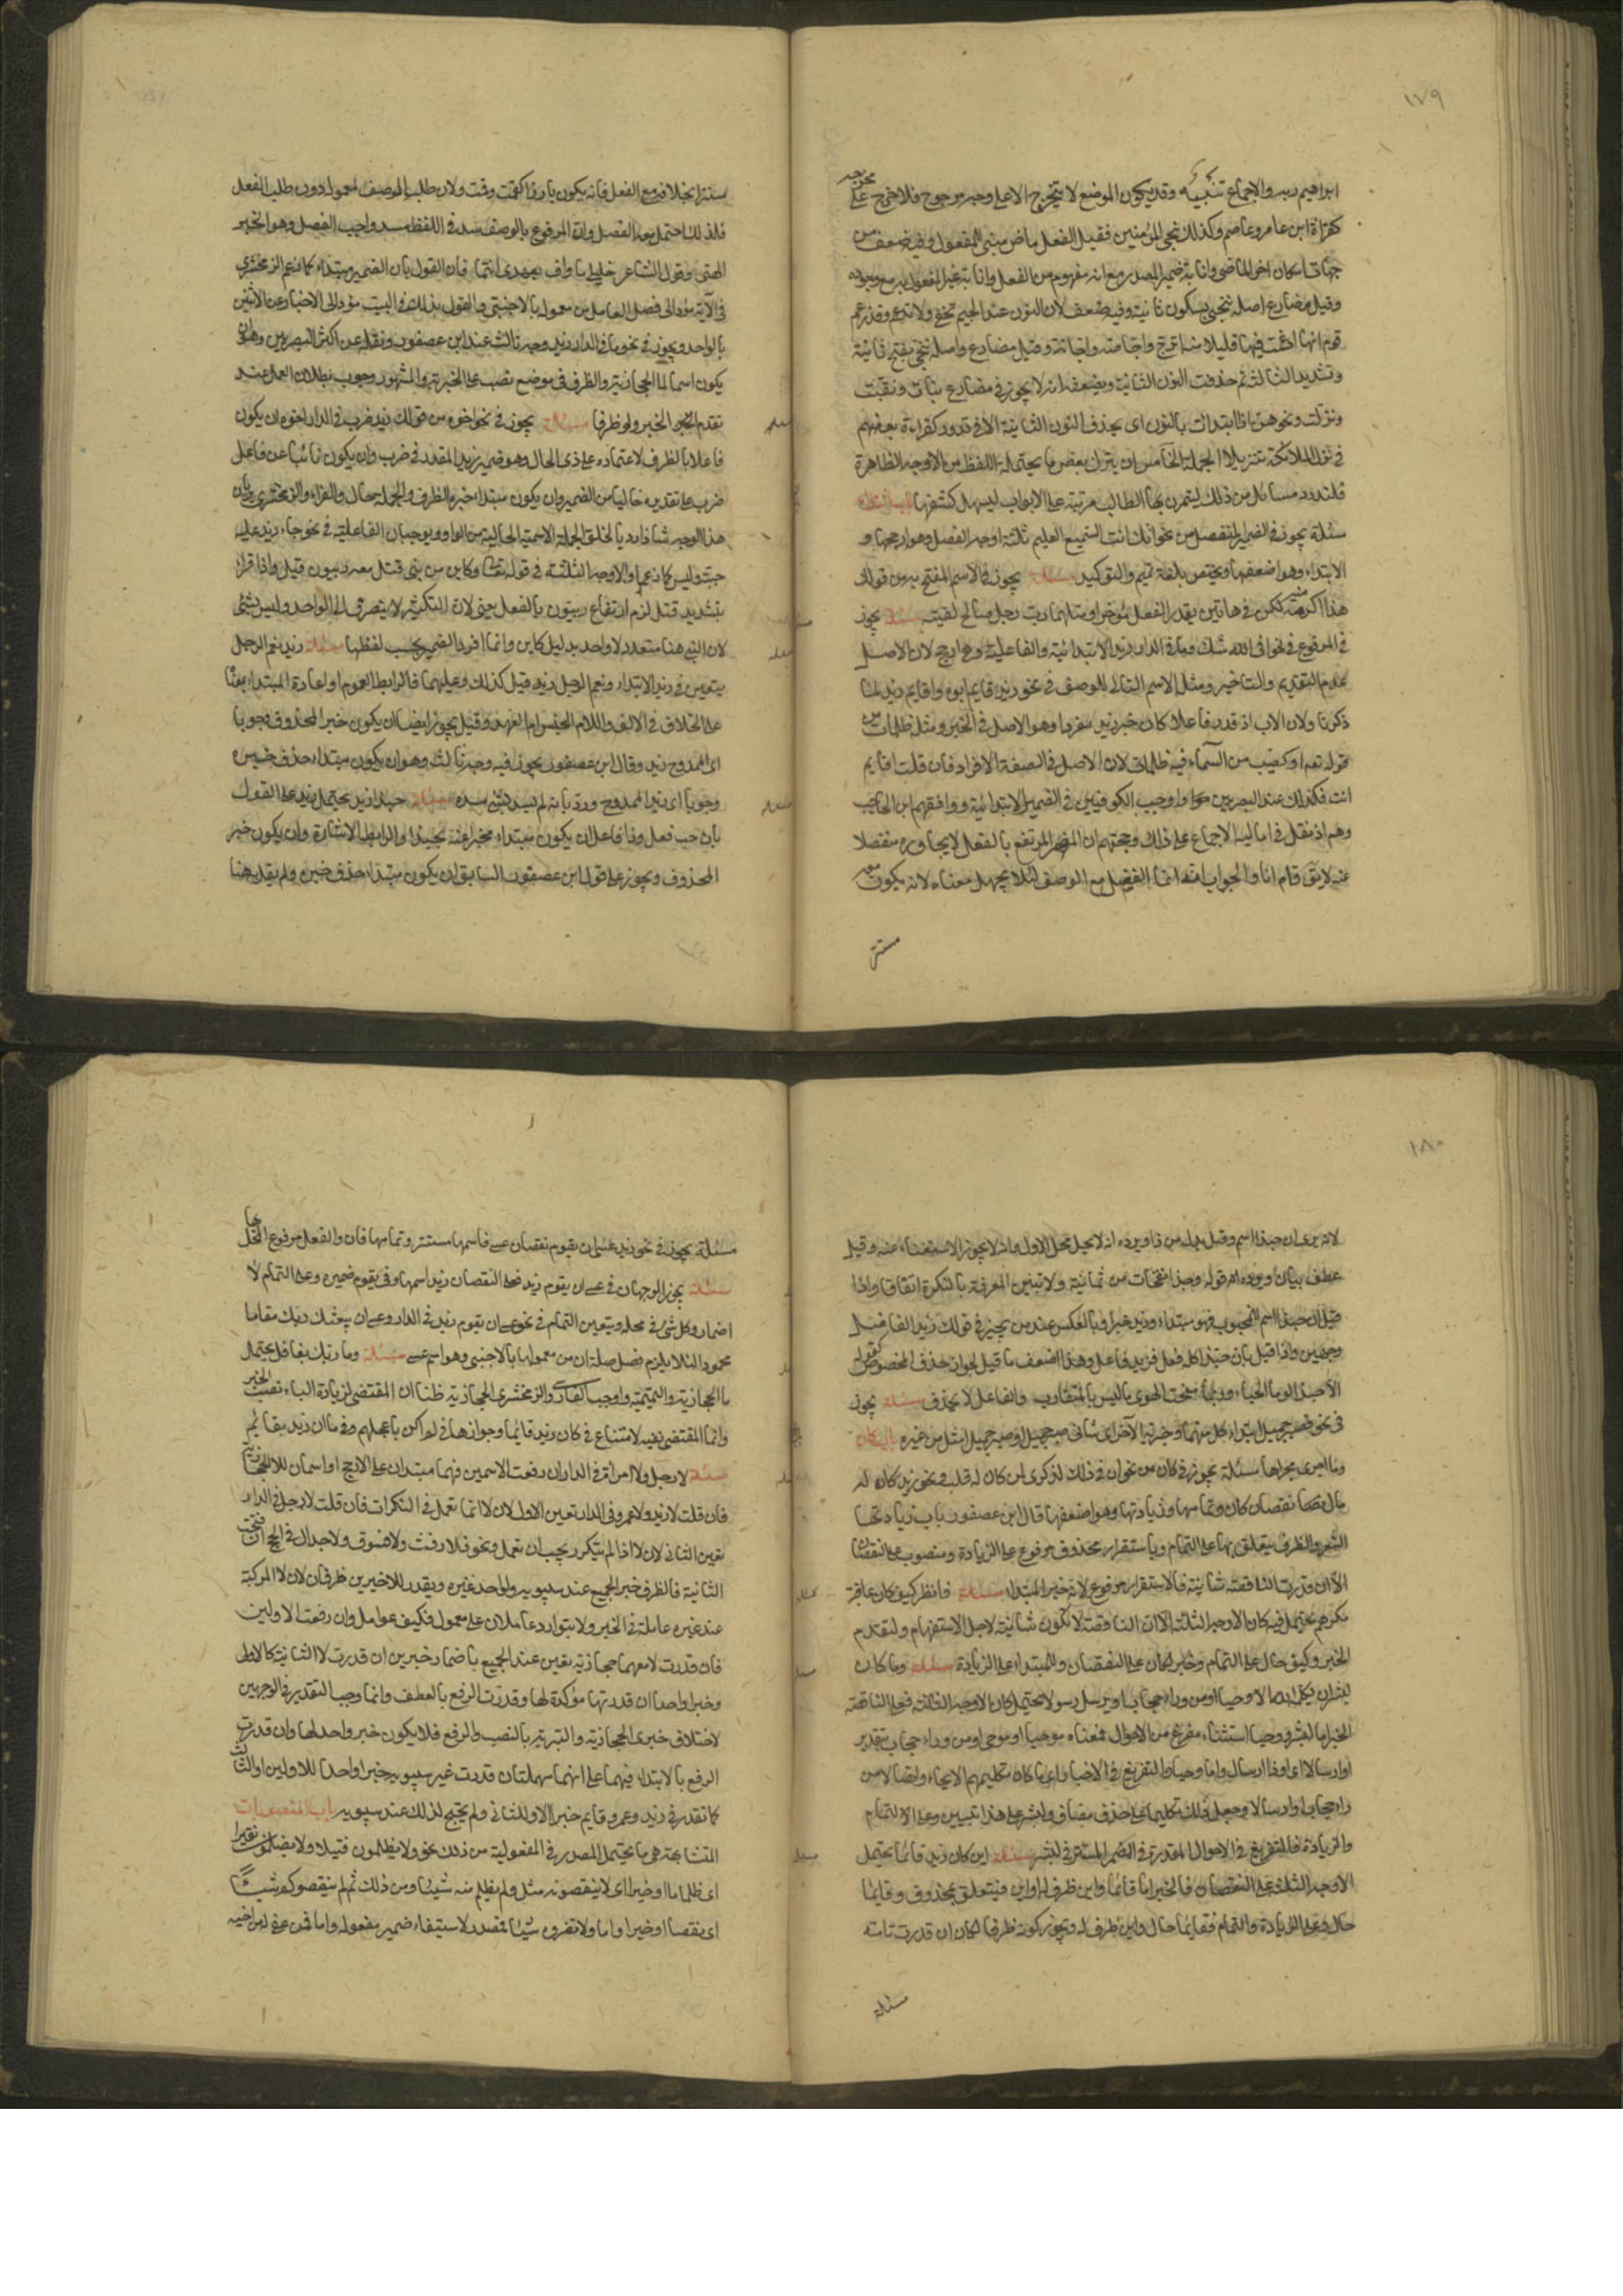 ١٧٩
ابراهيم ربه والاجماع تنبيه وقد يكون الموضع لا يتخرج الا على وجه مرجوح فلا حرج على مخرجه
كقراءة ابن عامر وعاصم وكذلك نجى المؤمنين فقيل الفعل ماض مبنى للمفعول وفيه ضعف من
جهات اسكان اخر الماضى وانابة ضمير المصدر مع انه مفهوم من الفعل وانابة غير المفعول به مع وجوده
وقيل مضارع اصله ننجى بسكون ثانيه وفيه ضعف لان النون عند الجيم تخفى ولا تدغم وقد زعم
قوم انها ادغمت فيها قليلا وان منه اترج واجاصة واجانة وقيل مضارع واصله ننجى بفتح ثانيه
وتشديد الثالث ثم حذفت النون الثانية ويضعفه انه لا يجوز فى مضارع نبات ونقبت
ونزلت ونحوهن اذا ابتدات بالنون اى بحذف النون الثانية الا فى ندور كقراءة بعضهم
فى نزل الملائكة تنزيلا الجهة الخامس ان يترك بعض ما يحتمله اللفظ من الاوجه الظاهرة
فلنورد مسائل من ذلك ليتمرن بها الطالب مرتبة على الابواب ليسهل كشفها باب المبتدا
مسئلة يجوز فى الضمير المنفصل من نحو انك انت السميع العليم ثلثة اوجه الفصل وهو ارجحها و
الابتداء وهو اضعفها ويختص بلغة تميم والتوكيد مسئلة يجوز فى الاسم المفتتح به من قولك
هذا اكرمته لكن فى هاتين يقدر الفعل مؤخرا ومثلها رب رجل صالح لقيته مسئلة يجوز
فى المرفوع فى نحو افى الله شك وما فى الدار زيد الابتدائية والفاعلية وهى ارجح لان الاصل
عدم التقديم والتاخير ومثله الاسم التالى للوصف فى نحو زيد قايم ابوه واقايم زيد لما
ذكرنا ولان الاب اذ قدر فاعلا كان خبر زيد مفردا وهو الاصل فى الخبر ومثله ظلمات من
قوله تعم او كصيب من السماء فيه ظلمات لان الاصل فى الصفة الافراد فان قلت اقايم
انت فكذلك عند البصريين واوجب الكوفيين فى الضمير الابتدائية ووافقهم ابن الحاجب
وهم اذ نقل فى اماليه الاجماع على ذلك وحجتهم ان المضمر المرتفع بالفعل لا يجاوره منفصلا
عنه لا يق قام انا والجواب انه انما انفصل مع الوصف لئلا يجهل معناه لانه يكون معه
مستتر
ستترا بخلافه مع الفعل فانه يكون بارزا كقمت وقمت ولان طلب الوصف لمعموله دون طلب الفعل
فلذلك احتمل معه الفصل ولان المرفوع بالوصف سد فى اللفظ مسد واجب الفصل وهو الخبر
الهتى وقول الشاعر خليلى ما واف بعهدى انتما فان القول بان الضمير مبتداء كما زعم الزمخشرى
فى الآية مؤد الى فصل العامل من معموله بالاجنبى والقول بذلك فى البيت مؤد الى الاخبار عن الاثنين
بالواحد ويجوز فى نحو ما فى الدار زيد وجه ثالث عند ابن عصفور ونقله عن اكثر البصريين وهو ان
يكون اسما لما الحجازية والظرف فى موضع نصب على الخبرية والمشهور وجوب بطلان العمل عند
تقدم الخبر ولو ظرفا مسئلة يجوز فى نحو اخوه من قولك زيد ضرب فى الدار اخوه ان يكون
فاعلا بالظرف لاعتماده على ذى الحال وهو ضمير زيد المقدر فى ضرب وان يكون نائبا عن فاعل
ضرب على تقديره خاليا من الضمير وان يكون مبتداء خبره الظرف والجملة حال والفراء والزمخشرى يريان
هذا الوجه شاذا رديا لخلو الجملة الاسمية الحالية من الواو ويوجبان الفاعلية فى نحو جاء زيد عليه
جبة وليس كما زعما والاوجه الثلثة فى قوله تعالى وكاين من نبى قتل معه ربيون قيل واذا قرئ
بتشديد قتل لزم ارتفاع ربيون بالفعل يعنى لان التكثير لا ينصرف الى الواحد وليس بشئ
لان النبى هنا متعدد لا واحد بدليل كاين وانما افرد الضمير بحسب لفظها مسئلة زيد نعم الرجل
يتعين فى زيد الابتداء ونعم الرجل زيد قيل كذلك وعليهما فالرابط العموم او اعادة المبتداء بمعناه
على الخلاف فى الالف واللام الجنس ام العهد وقيل يجوز ايضا ان يكون خبرا لمحذوف وجوبا
اى الممدوح زيد وقال ابن عصفور يجوز فيه وجه ثالث وهو ان يكون مبتداء حذف خبره
وجوبا اى زيد الممدوح ورد بانه لم يسد شئ مسده مسئلة حبذا زيد يحتمل زيد على القول
بان حب فعل وذا فاعل ان يكون مبتداء مخبرا عنه بحبذا والرابط الاشارة وان يكون خبر
المحذوف ويجوز على قول ابن عصفور السابق ان يكون مبتداء حذف خبره ولم يقل به هنا
١٨٠
لانه يرى ان حبذا اسم وقيل بدل من ذا ويرده انه لا يحل محل الاول وانه لا يجوز الاستغناء عنه وقيل
عطف بيان ويرده قوله وحبذا نفحات من يمانية ولا تبين المعرفة بالنكرة اتفاقا واذا
قيل ان حبذا اسم للمحبوب فهو مبتداء وزيد خبر او بالعكس عند من يجيز فى قولك زيد الفاضل
وجهين واذا قيل بان حبذا كله فعل فزيد فاعل وهذا اضعف ما قيل لجواز حذف المخصوص كقوله
الا حبذا لو ما الحياء وربما منحت الهوى ما ليس بالمتقارب والفاعل لا يحذف مسئلة يجوز
فى نحو فصبر جميل ابتداء كل منهما وخبرية الآخر اى شانى صبر جميل او صبر جميل امثل من غيره باب كان
وما جرى مجراها مسئلة يجوز فى كان من نحو ان فى ذلك لذكرى لمن كان له قلب ونحو زيد كان له
مال نقصان كان وتمامها وزيادتها وهو اضعفها قال ابن عصفور باب زيادتها
الشعر والظرف متعلق بها على التمام وباستقرار محذوف مرفوع على الزيادة ومنصوب على النقصان
الا ان قدرت الناقصة شانية فالاستقرار مرفوع لانه خبر المبتداء مسئلة فانظر كيف كان عاقبة
مكرهم يحتمل فى كان الاوجه الثلثة الا ان الناقصة لا تكون شانية لاجل الاستفهام ولتقدم
الخبر وكيف حال على التمام وخبر لكان على النقصان وللمبتداء على الزيادة مسئلة وما كان
لبشر ان يكلمه الله الا وحيا او من وراء حجاب او يرسل رسولا تحتمل كان الاوجه الثلثة فعلى الناقصة
الخبر اما لبشر ووحيا استثناء مفرغ من الاحوال فمعناه موحيا او موحى او من وراء حجاب بتقدير
او ارسالا اى او ذا ارسال واما وحيا والتفريغ فى الاخبار اى ما كان تكليمهم الا ايحاء وايصالا من
وراء حجاب او ارسالا وجعل ذلك تكليما على حذف مضاف ولبشر على هذا تبيين وعلى الالتمام
والزيادة فالتفريغ فى الاحوال المقدرة فى الضمير المستتر فى لبشر مسئلة اين كان زيد قائما يحتمل
الاوجه الثلثة على النقصان فالخبر اما قائما واين ظرف له او اين فيتعلق بمحذوف وقايما
حال وعلى الزيادة والتمام فقايما حال واين ظرف له ويجوز كونه ظرفا لكان ان قدرت تامة
مسئلة
مسئلة يجوز فى نحو زيد عسى ان يقوم نقصان عسى فاسمها مستتر وتمامها فان والفعل مرفوع المحل بها
مسئلة يجوز الوجهان فى عسى ان يقوم زيد فعلى النقصان زيد اسمها وفى يقوم ضميره وعلى التمام لا
اضمار وكل شئ فى محله ويتعين التمام فى نحو عسى ان يقوم زيد فى الدار وعسى ان يبعثك ربك مقاما
محمودا لئلا يلزم فصل صلة ان من معمولها بالاجنبى وهو اسم عسى مسئلة وما ربك بغافل يحتمل
ما الحجازية والتميمية واوجب الفارسى والزمخشرى الحجازية ظنا ان المقتضى لزيادة الباء نصب الخبر
وانما المقتضى نفيه لامتناع فى كان زيد قائما وجوازها فى لم اكن باعجلهم وفى ما ان زيد بقايم
مسئلة لا رجل ولا امراة فى الدار ان رفعت الاسمين فهما مبتدان على الارجح او اسمان للا الحجازية
فان قلت لا زيد ولا عمرو فى الدار تعين الاول لان لا انما تعمل فى النكرات فان قلت لا رجل فى الدار
تعين الثانى لان لا اذا لم يتكرر يجب ان تعمل ونحو فلا رفث ولا فسوق ولا جدال فى الحج ان فتحت
الثانية فالظرف خبر الجميع عند سيبويه ولواحد عند غيره ويقدر للاخيرين ظرفان لان لا المركبة
عند غيره عاملة فى الخبر ولا يتوارد عاملان على معمول فكيف عوامل وان رفعت الاولين
فان قدرت لا معهما حجازية تعين عند الجميع باضمار خبرين ان قدرت لا الثانية كالاولى
وخبرا واحدا ان قدرتها مؤكدة لها وقدرت الرفع بالعطف وانما وجب التقدير فى الوجهين
لاختلاف خبرى الحجازية والتبرية بالنصب والرفع فلا يكون خبر واحد لها وان قدرت
الرفع بالابتداء فيهما على انهما مهملتان قدرت غير سيبويه خبرا واحدا للاولين او الثالث
كما تقدر فى زيد وعمرو قايم خبر الاول والثانى ولم يحتج لذلك عند سيبويه باب المنصوبات
المتشابهة هى ما يحتمل المصدر فى المفعولية من ذلك نحو ولا يظلمون فتيلا ولا يظلمون نقيرا
اى ظلما ما او خيرا اى لا ينقصونه مثل ولم يظلم منه شيئا ومن ذلك ثم لم ينقصوكم شيئا
اى نقصا او خيرا واما ولا تضروه شيئا فمصدر لاستيفاء ضمير مفعوله واما فمن عفى له من اخيه